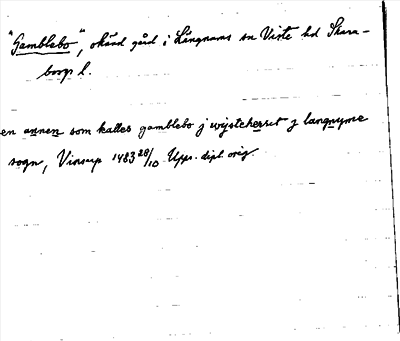 "Gamblebo", okänd gård i Långnums sn Viste hd Skara-
borgs l.
en annen som kalles gamblebo j wystehærret j langnyme
sogn, Vinsarp 1483 28/10 Upps. dipl. orig.